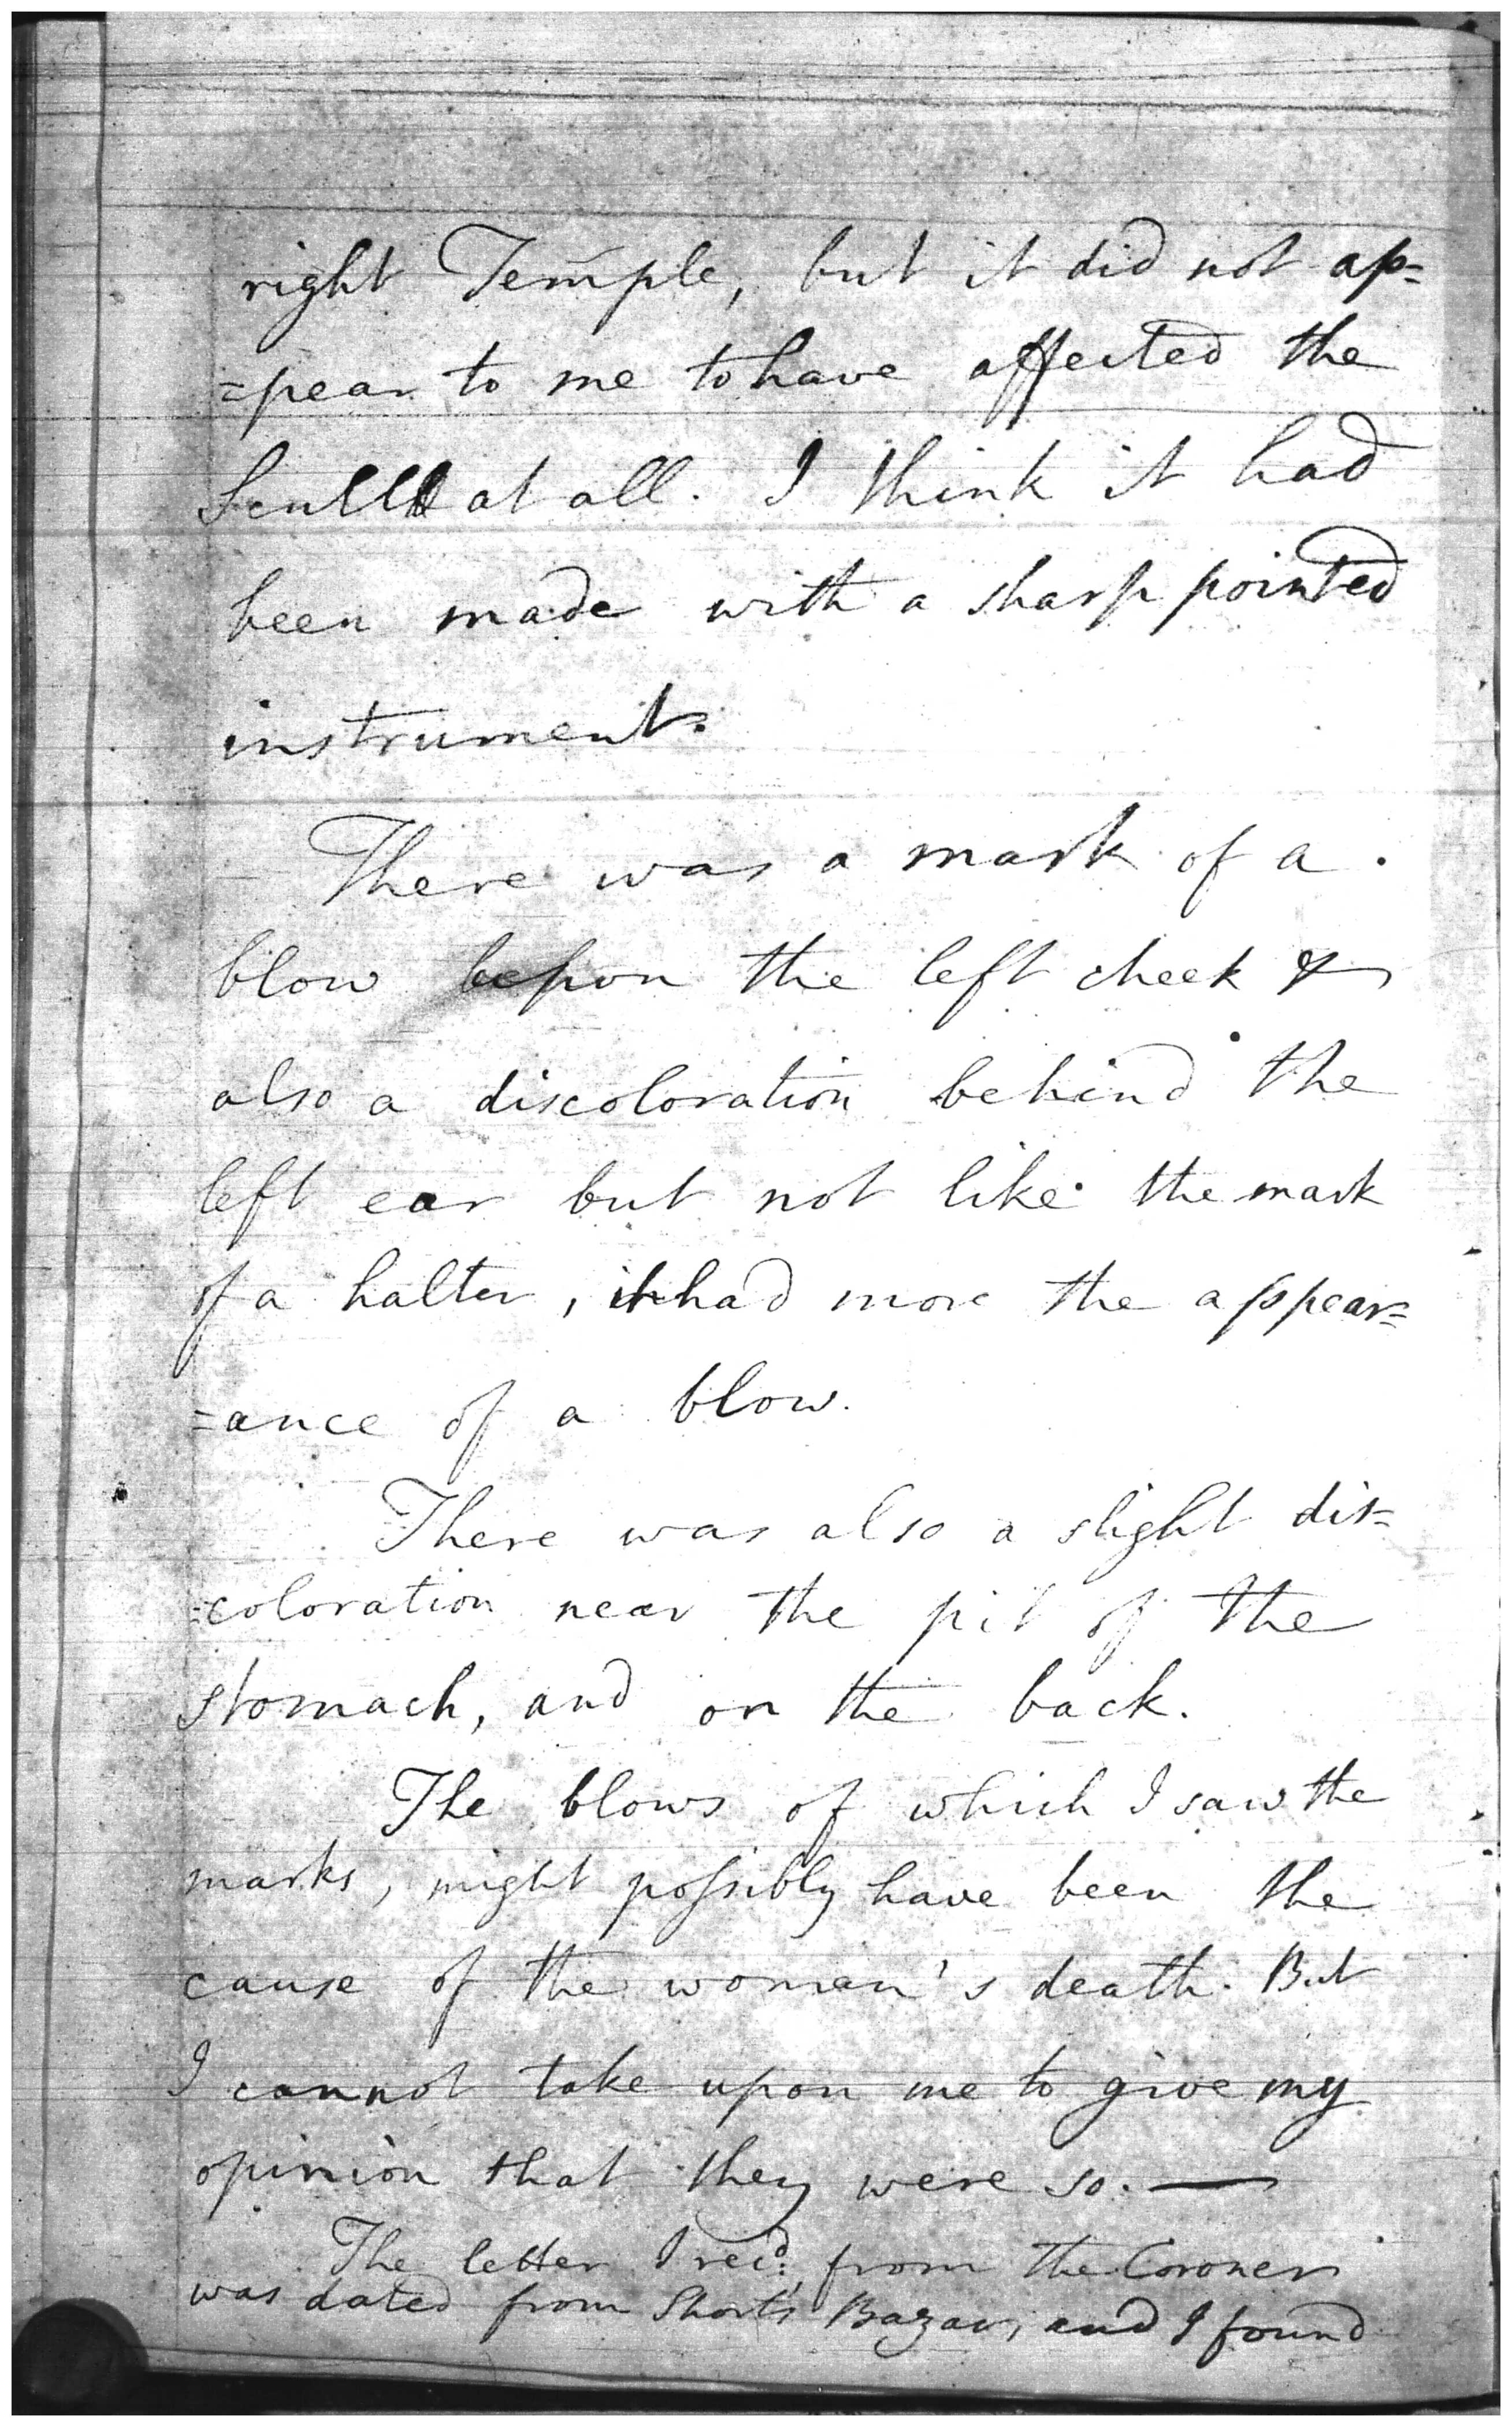 right Temple, but it did not ap=
=pear to me to have affected the
Scull at all. I think it had
been made with a sharp pointed
instrument.
There was a mark of a
blow upon the left cheek &
also a discoloration behind the
left ear but not like the mark
of a halter, it had more the appear=
=ance of a blow.
There was also a slight dis=
=coloration near the pit of the
stomach, and on the back.
The blows of which I saw the
marks, might possibly have been the
cause of the woman's death. But
I cannot take upon me to give my
opinion that they were so. —
The letter I recd: from the Coroner
was dated from Short's Bazar, and I found